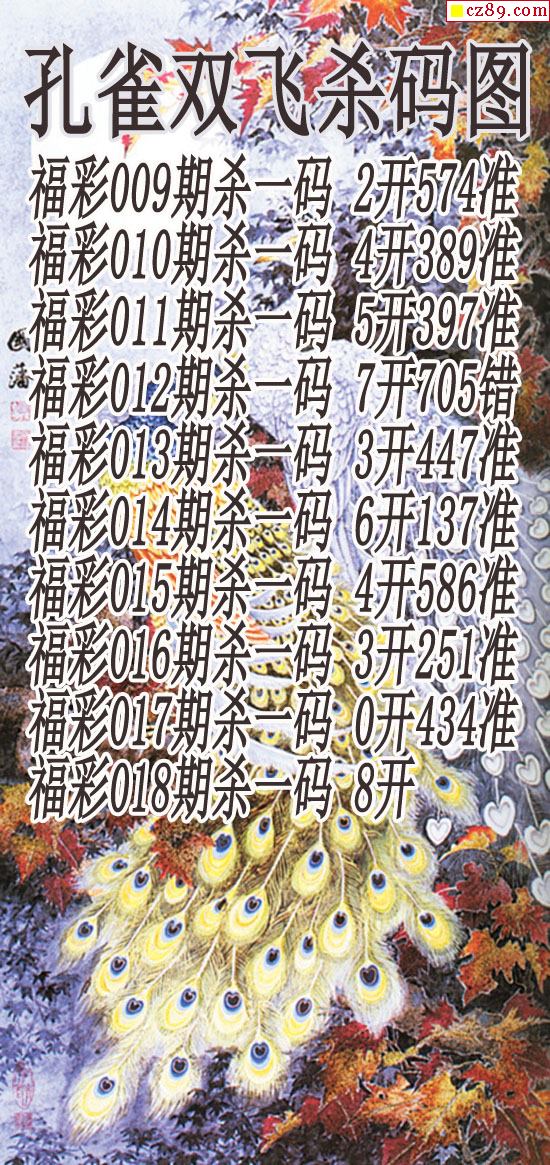 cz89.com
孔雀双飞杀码图
福彩009期杀一码 2开574准
福彩010期杀一码 4开389准
福彩011期杀一码 5开397准
福彩012期杀一码 7开705错
福彩013期杀一码 3开447准
福彩014期杀一码 6开137准
福彩015期杀一码 4开586准
福彩016期杀一码 3开251准
福彩017期杀一码 0开434准
福彩018期杀一码 8开